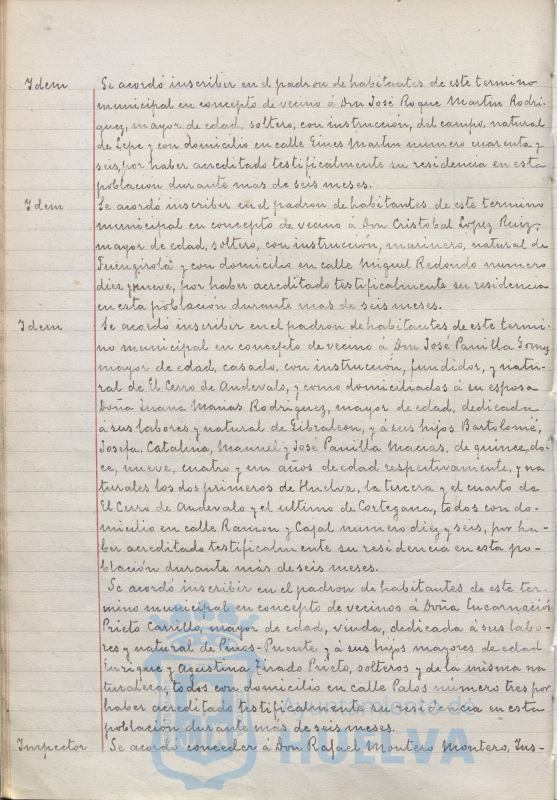 Idem Se acordó inscribir en el padron de habitantes de este termino
municipal en concepto de vecino á Don José Roque Martin Rodri-
guez, mayor de edad, soltero, con instrucción, del campo, natural
de Lepe y con domicilio en calle Gines Martin numero cuarenta y
seis, por haber acreditado testificalmente su residencia en esta
poblacion durante mas de seis meses.
Idem Se acordó inscribir en el padron de habitantes de este termino
municipal en concepto de vecino á Don Cristobal Lopez Ruiz,
mayor de edad, soltero, con instrucción, marinero, natural de
Fuengirola y con domicilio en calle Miguel Redondo numero
diez y nueve, por haber acreditado testificalmente su residencia
en esta población durante mas de seis meses.
Idem Se acordó inscribir en el padron de habitantes de este termi-
no municipal en concepto de vecino á Don José Panilla Gomez
mayor de edad, casado, con instrucción, fundidor, y natu-
ral de El Cerro de Andevalo, y como domiciliados á su esposa
Doña Juana Macias Rodriguez, mayor de edad, dedicada
á sus labores y natural de Gibraleon, y á sus hijos Bartolomé,
Josefa, Catalina, Manuel y José Panilla Macias, de quince, do-
ce, nueve, cuatro y un años de edad respectivamente, y na-
turales los dos primeros de Huelva, la tercera y el cuarto de
El Cerro de Andevalo y el ultimo de Cortegana, todos con do-
micilio en calle Ramon y Cajal numero diez y seis, por ha-
ber acreditado testificalmente su residencia en esta po-
blación durante más de seis meses.
Se acordó inscribir en el padron de habitantes de este ter-
mino municipal en concepto de vecinos á Doña Encarnación
Prieto Carrillo, mayor de edad, viuda, dedicada á sus labo-
res y natural de Pinos-Puente, y á sus hijos mayores de edad
Enrique y Agustina Tirado Prieto, solteros y de la misma na-
turaleza, todos con domicilio en calle Palos número tres por
haber acreditado testificalmente su residencia en esta
población durante más de seis meses.
Inspector Se acordó conceder á Don Rafael Montero Montero, Ins-
Ayuntamiento de
HUELVA